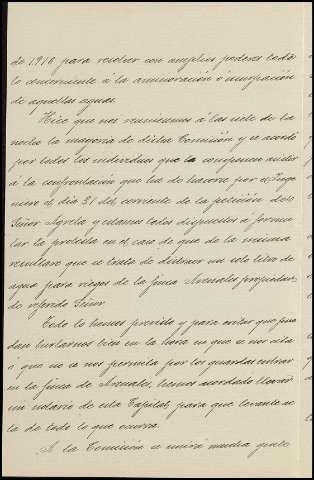 de 1916 para resolver con amplios poderes todo
lo concerniente á la aminoración ó usurpación
de aquellas aguas.
Hice que nos reuniesemos á las siete de la
noche la mayoria de dicha Comisión y se acordó
por todos los individuos que la componen asistir
á la confrontación que ha de hacerse por el Inge
niero el dia 31 del corriente de la petición del
Señor Agrela y estamos todos dispuestos á formu
lar la protesta en el caso de que de la misma
resultare que se trata de distraer un solo litro de
agua para riegos de la finca Arenales propiedad
de referido Señor.
Todo lo hemos previsto y para evitar que pue
dan burlarnos bien en la hora en que se nos cita
ó que no se nos permita por los guardas entrar
en la finca de Arenales, hemos acordado llevar
un notario de esta Capital, para que levante ac
ta de todo lo que ocurra.
A la Comisión se unirá mucha gente